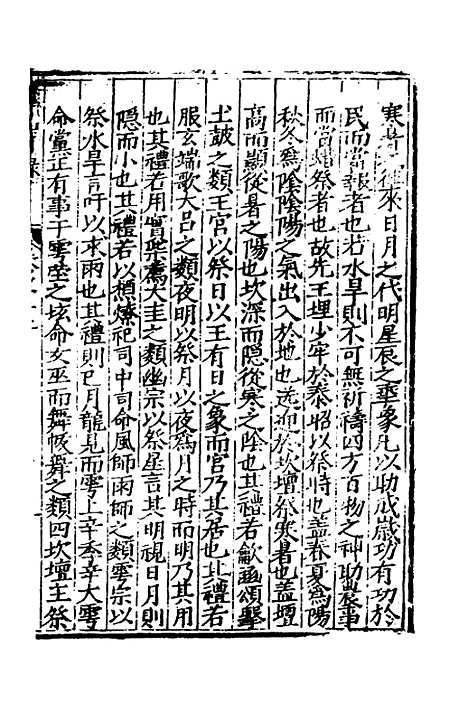 寒暑之往來日月之代明星辰之垂象凡以助成歲功有功於
民而當報者也若水旱則不可無祈禱四方百物之神助歲事
而當焟祭者也故先王埋少牢於泰昭以祭時也蓋春夏為陽
秋冬為陰陰陽之氣出入於地也迭而於坎壇祭寒暑也蓋壇
高而顯從暑之陽也坎深而隱從寒之陰也其禮若龡豳頌擊
土鼓之類王宫以祭日以王有日之象而宫乃其居也其禮若
服玄端歌大呂之類夜明以祭月以夜為月之時而明乃其用
也其禮若用實柴薦大圭之類幽宗以祭星言其明視日月則
隱而小也其禮若以槱燎祀司中司命風師雨師之類雩宗以
祭水旱言吁以求雨也其禮則巳月龍見而雩上辛季辛大雩
命黨正有事于雩禜之垓命女巫而舞帗舞之類四坎壇主祭